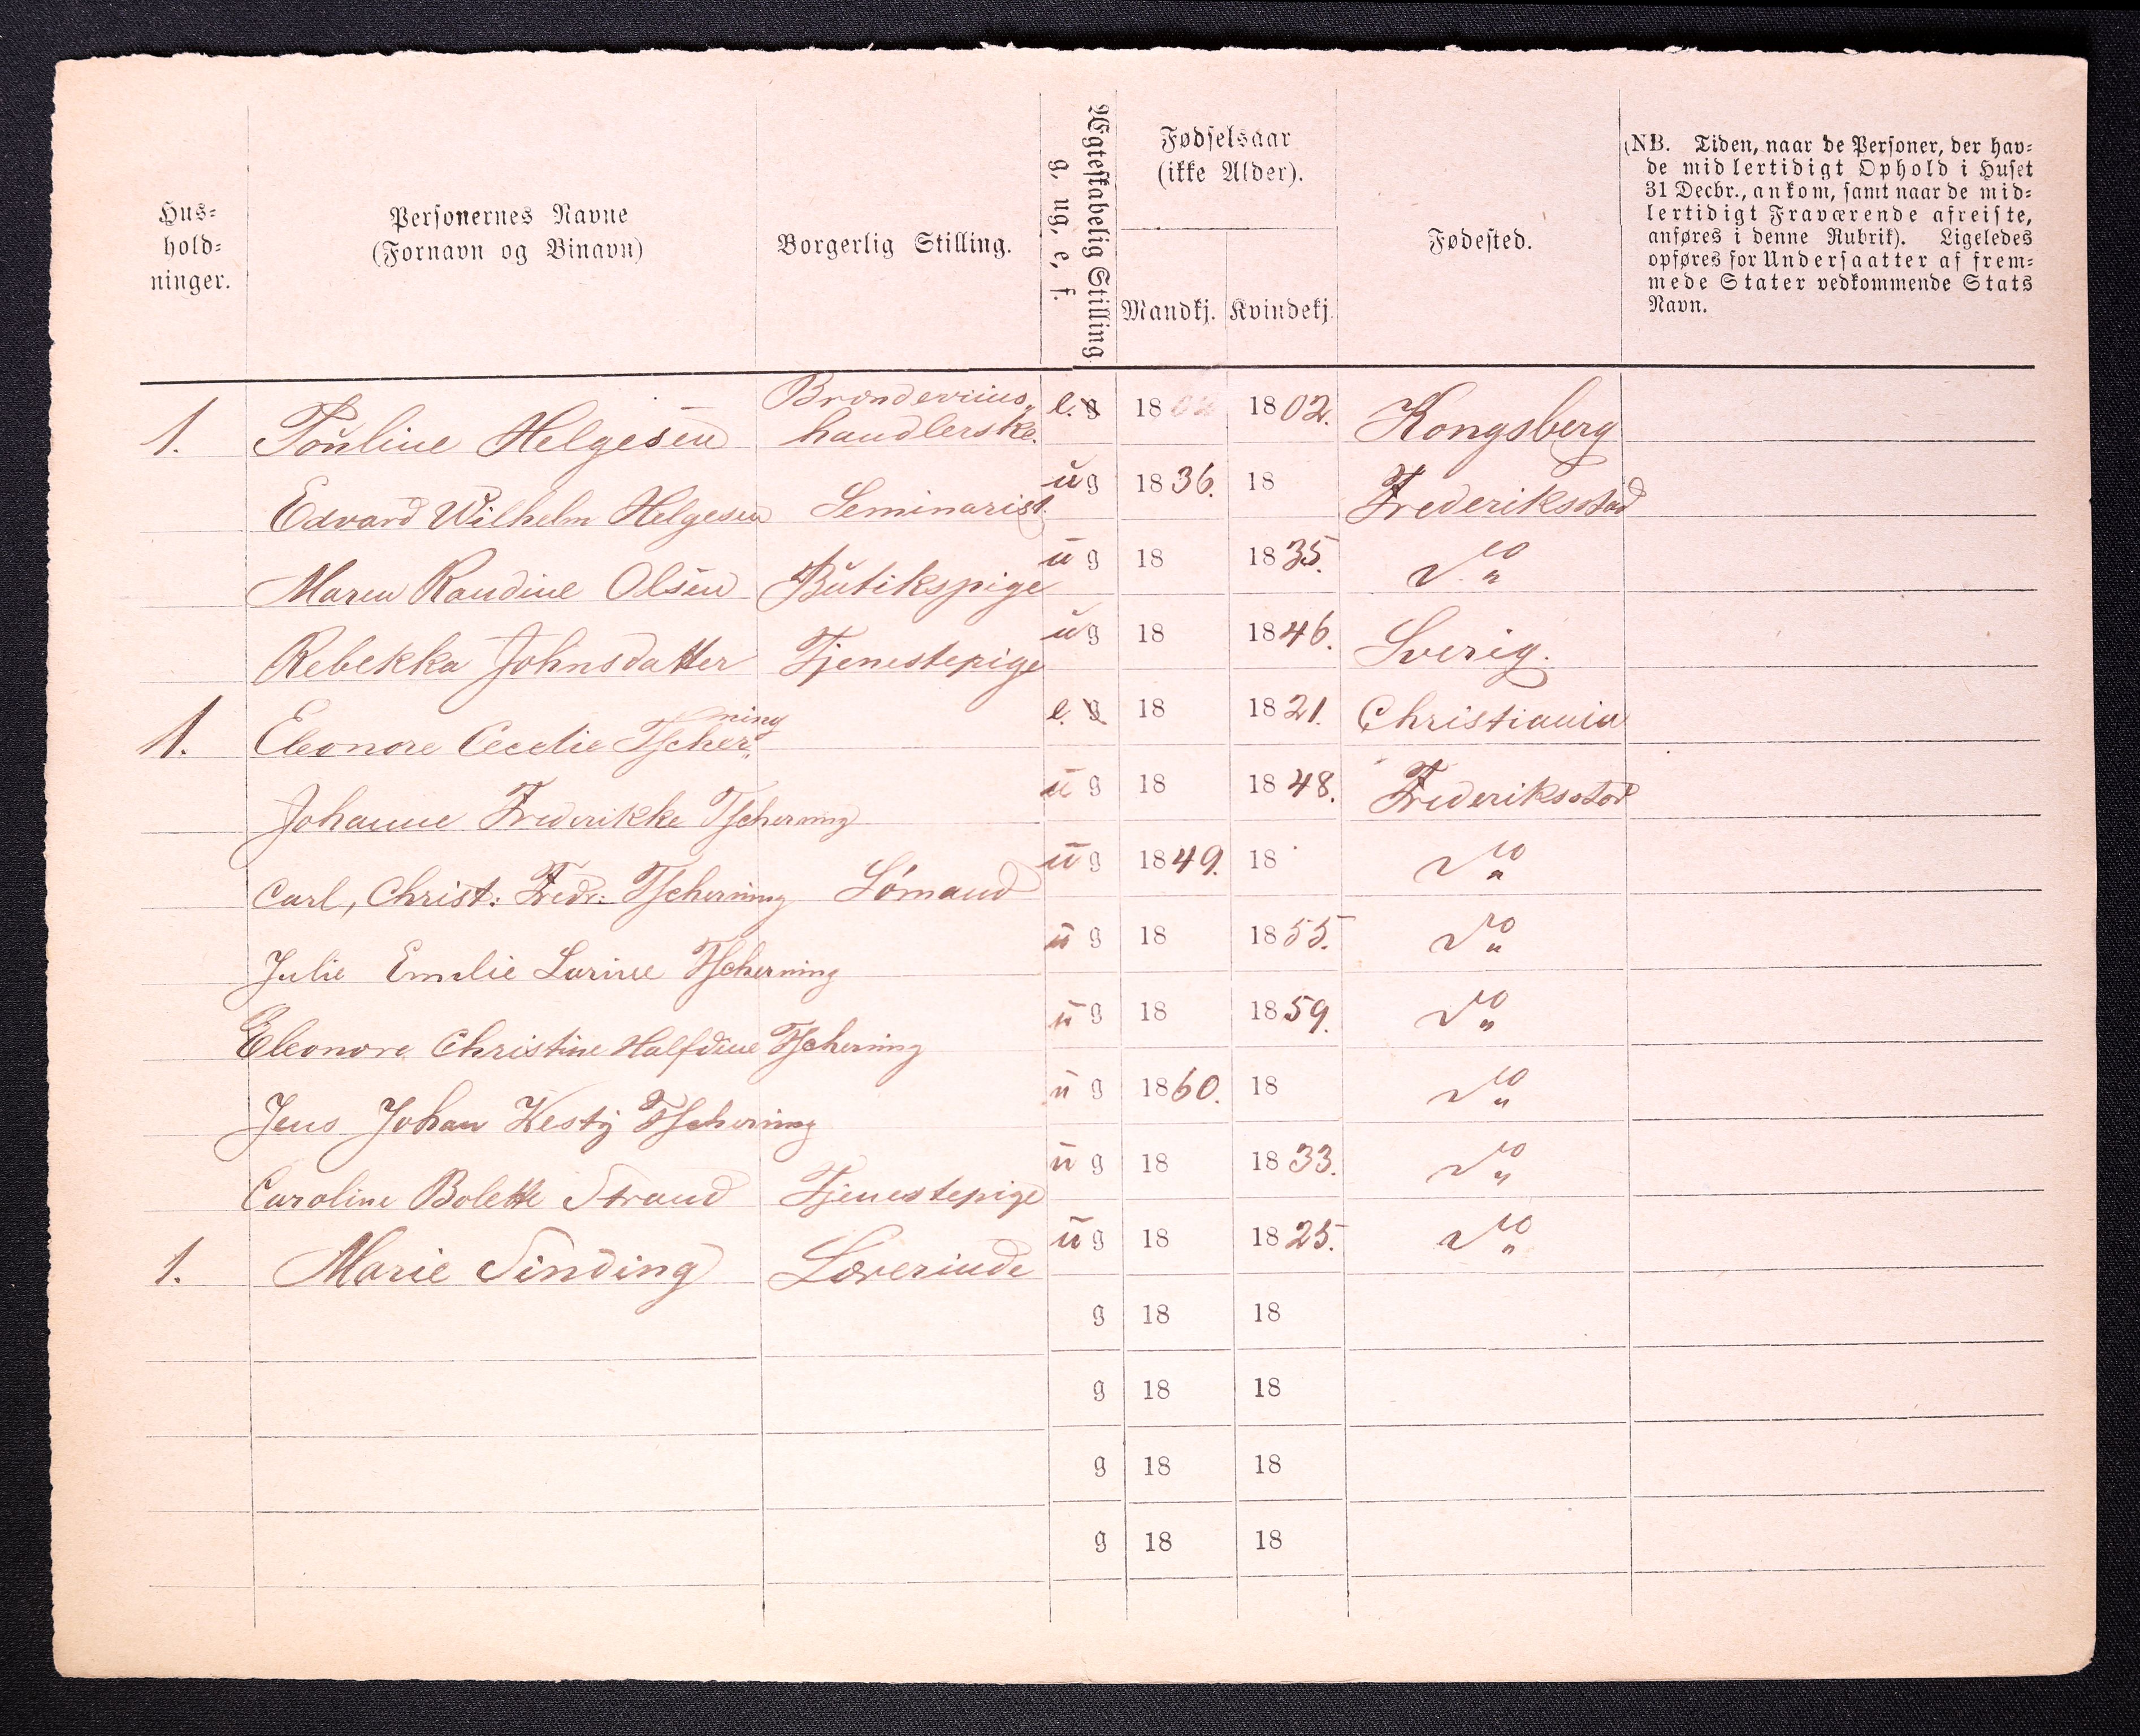 Hus=
hold=
ninger.
Personernes Navne
(Fornavn og Binavn)
Borgerlig Stilling.
Ægteskabelig Stilling
g, ug, e, f.
Fødselsaar
(ikke Alder).
Mandkj. Kvindekj.
Fødested.
(NB. Tiden, naar de Personer, der hav=
de midlertidigt Ophold i Huset
31 Decbr., ankom, samt naar de mid=
lertidigt Fraværende afreiste,
anføres i denne Rubrik). Ligeledes
opføres for Undersaatter af frem=
mede Stater vedkommende Stats
Navn.
1. Pauline Helgesen Brændeviins„ handlerske. e. g 1802 1802. Kongsberg
Edvard Wilhelm Helgesen Seminarist ug 1836. 18 Frederiksstad
Maren Randine Olsen Butikspige ug 18 1835. do „
Rebekka Johnsdatter Tjenestepige ug 18 1846. Sverig.
1. Eleonore Cecelie Tscher„ning e. g 18 1821. Christiania
Johanne Frederikke Tscherning ug 18 1848. Frederiksstad
Carl, Christ: Fedr: Tscherning Sømand ug 1849. 18 do „
Julie Emilie Larine Tscherning ug 18 1855. do „
Eleonora Christine Halfdine Tscherning ug 18 1859. do „
Jens Johan Tscherning ug 1860. 18 do „
Caroline Bolette Strand Tjenestepige ug 18 1833. do „
1. Marie Sinding Lærerinde ug 18 1825. do „
g 18 18
g 18 18
g 18 18
g 18 18